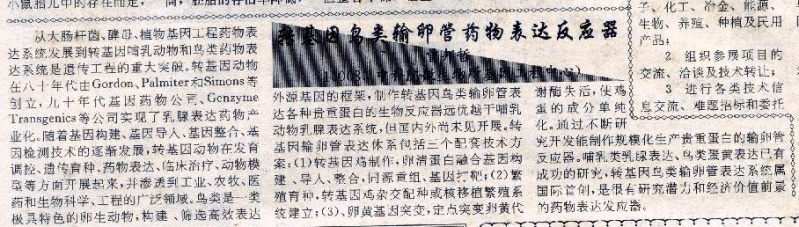 小鼠胎儿中的存在而定,
从大肠杆菌、酵母、植物基因工程药物表
达系统发展到转基因哺乳动物和鸟类药物表
达系统是遗传工程的重大突破。转基因动物
在八十年代由Gordon、Palmiter和Simons等
创立,九十年代基因药物公司、Genzyme
Transgenics等公司实现了乳腺表达药物产
业化。随着基因构建、基因导入、基因整合、基
因检测技术的逐渐发展,转基因动物在发育
调控、遗传育种、药物表达、临床治疗、动物模
型等方面开展起来,并渗透到工业、农牧、医
药和生物科学、工程的广泛领域。鸟类是一类
极具特色的卵生动物,构建、筛选高效表达
转基因鸟类输卵管药物表达反应器
外源基因的框架,制作转基因鸟类输卵管表
达各种贵重蛋白的生物反应器远优越于哺乳
动物乳腺表达系统,但国内外尚未见开展。转
基因输卵管表达体系包括三个配套技术方
案:(1)转基因鸡制作,卵清蛋白融合基因构
建、导人、整合,同源重组、基因打靶;(2)繁
殖育种,转基因鸡杂交配种或核移植繁殖系
统建立;(3)、卵黄基因突变,定点突变卵黄代
谢酶失活,使鸡
蛋的成分单纯
化。通过不断研
究开发能制作规模化生产贵重蛋白的输卵管
反应器。哺乳类乳腺表达、鸟类蛋黄表达已有
成功的研究,转基因鸟类输卵管表达系统属
国际首创,是很有研究潜力和经济价值前景
的药物表达发应器。
子、化工、冶金、能源、
生物、养殖、种植及民用
产品;
2 组织参展项目的
交流、洽谈及技术转让;
3 进行各类技术信
息交流、难题招标和委托